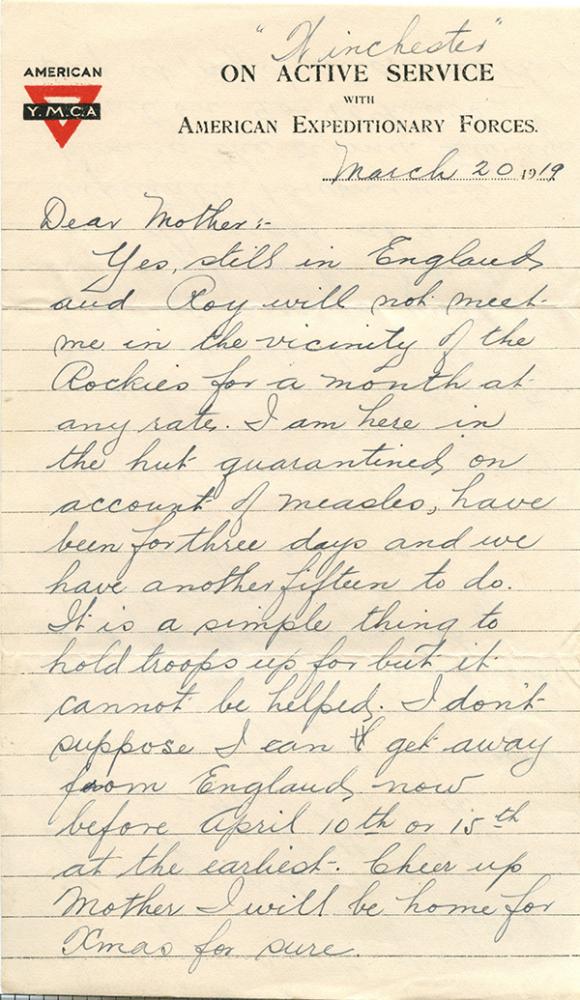 "Winchester"
AMERICAN
Y.M.C.A
ON ACTIVE SERVICE
WITH
AMERICAN EXPEDITIONARY FORCES.
March 20 1919
Dear Mother:-
Yes, still in England
and Roy will not meet
me in the vicinity of the
Rockies for a month at
any rate. I am here in
the hut quarantined on
account of measles, have
been for three days and we
have another fifteen to do.
It is a simple thing to
hold troops up for but it
cannot be helped. I don't
suppose I can get away
from England now
before April 10th or 15th
at the earliest. Cheer up
Mother I will be home for
Xmas for sure.